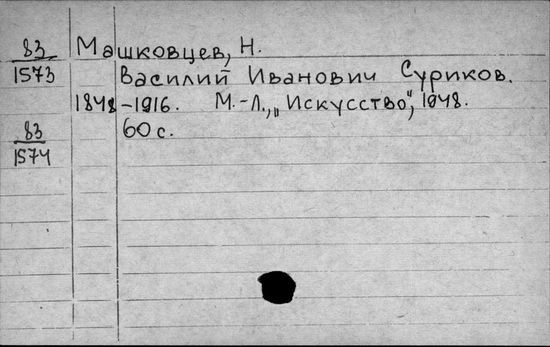 83 Машковцев, Н.
1573 Василий Иванович Суриков.
1848-1916. М.-Л., „Искусство", 1948.
83 60 с.
1574